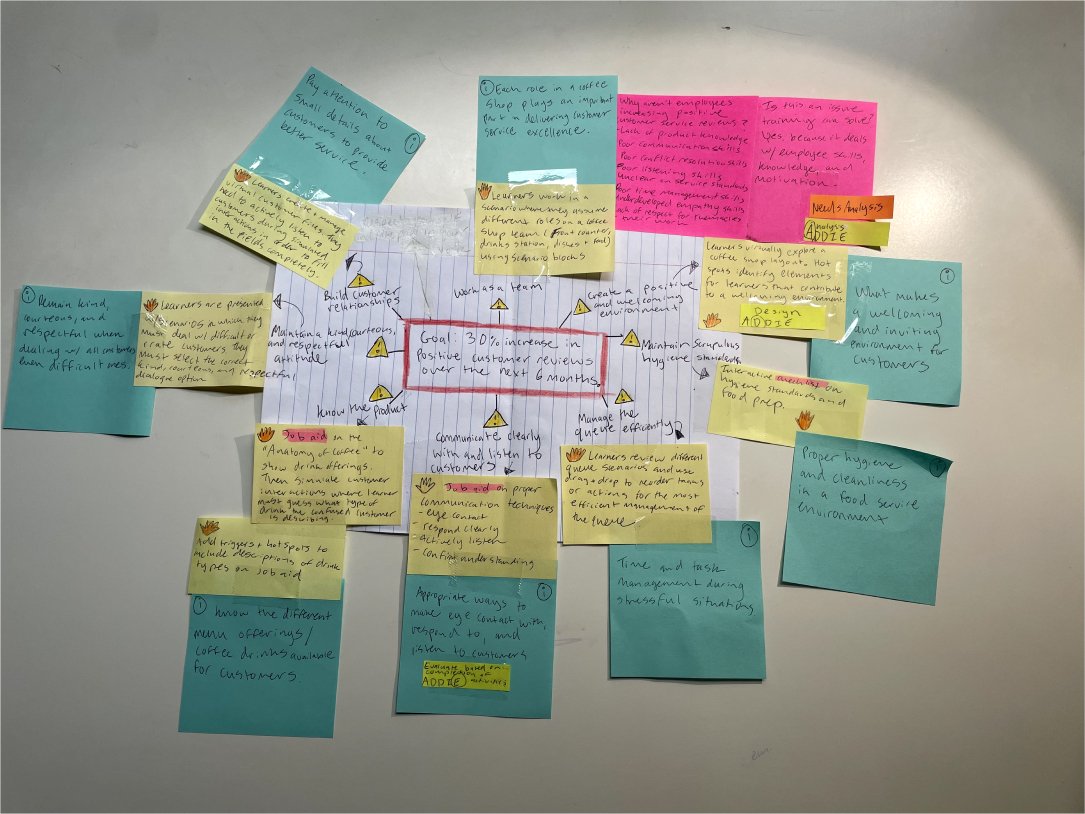 Pay attention to
small details about
customers to provide
better service.
i
Learners create + manage
virtual customer files. They
need to actively listen to
customers during branched
interactions in order to fill
in the fields completely.
i Each role in a coffee
shop plays an important
part in delivering customer
service excellence.
Learners work in a
scenario where they assume
different roles on a coffee
shop team (front counter,
drinks station, dishes + food)
using scenario blocks
Why aren't employees
increasing positive
customer service reviews?
- Lack of product knowledge
Poor communication skills
Poor conflict resolution skills
Poor listening skills
Unclear on service standards
Poor time management skills
Underdeveloped empathy skills
Lack of respect for themselves
their work
Is this an issue
training can solve?
Yes, because it deals
w/ employee skills,
knowledge, and
motivation.
Needs Analysis
Analysis
ADDIE
Learners virtually explore a
coffee shop layout. Hot
spots identify elements
for learners that contribute
to a welcoming environment.
Design
ADDIE
i
What makes
a welcoming
and inviting
environment for
customers
i Remain kind,
courteous, and
respectful when
dealing w/ all customers
even difficult ones.
Learners are presented
w/ scenarios in which they
must deal w/ difficult or
irate customers. They
must select the correct
kind, courteous, and respectful
dialogue option
Build customer
relationships
Work as a team
Create a positive
and welcoming
environment
Maintain a kind, courteous,
and respectful
attitude
Goal: 30% increase in
positive customer reviews
over the next 6 months.
Maintain scrupulous
hygiene standards
Know the product
Communicate clearly
with and listen to
customers
Manage the
queue efficiently
Interactive checklist on
hygiene standards and
food prep.
i
Proper hygiene
and cleanliness
in a food service
environment
Job aid on the
"Anatomy of Coffee" to
show drink offerings.
Then simulate customer
interactions where learner
must guess what type of
drink the confused customer
is describing.
Add triggers + hotspots to
include descriptions of drink
types on job aid
i Know the different
menu offerings/
coffee drinks available
for customers.
Job aid on proper
communication techniques
- eye contact
- respond clearly
- actively listen
- confirm understanding
i
Appropriate ways to
make eye contact with,
respond to, and
listen to customers
Evaluate based on
completion of
ADDIE activities
Learners review different
queue scenarios and use
drag + drop to reorder tasks
or actions for the most
efficient management of
the queue
i
Time and task
management during
stressful situations